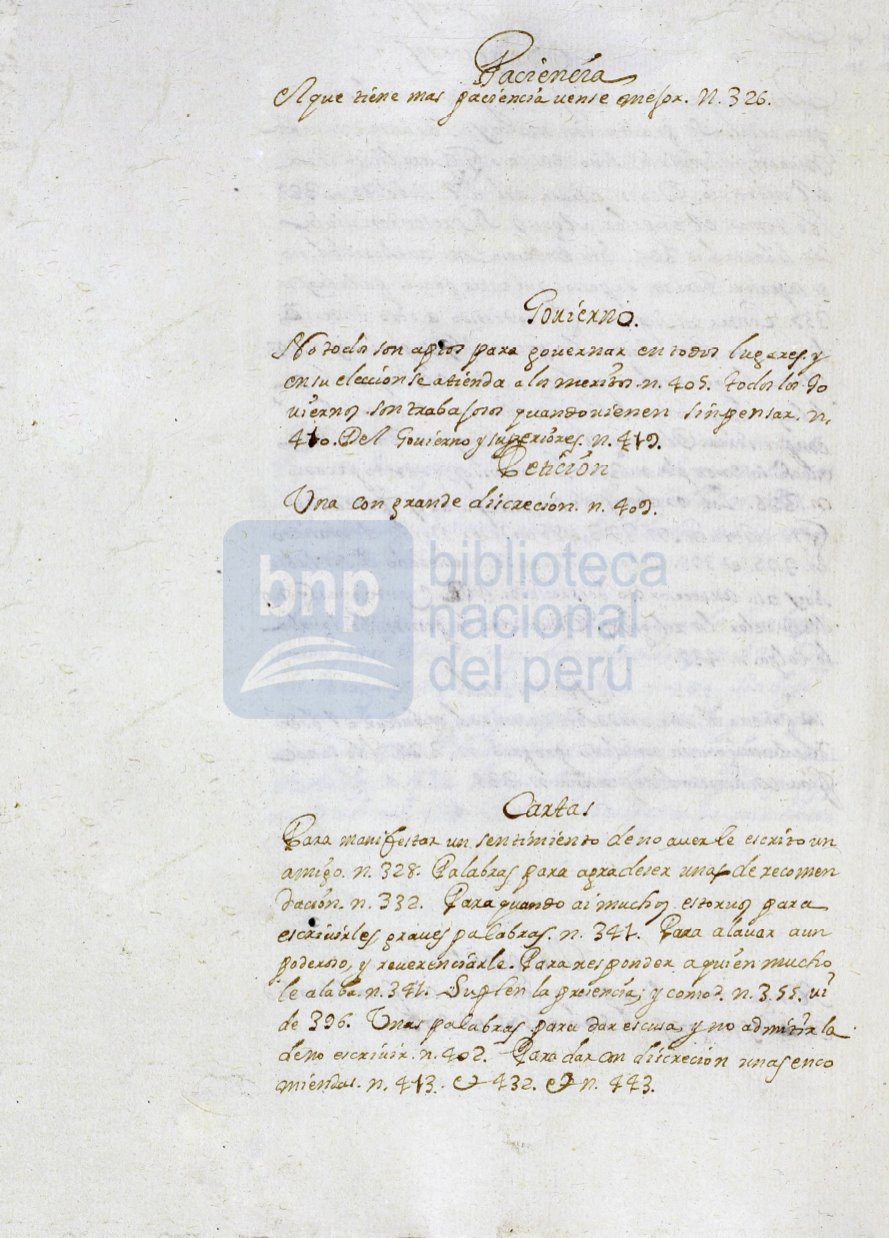 Paciencia
A que tiene mas paciencia uense mejor. N. 326.
Gouierno.
No todos son aptos para governar en todos lugares, y
en su eleccion se atienda a los meritos. n. 405. todos los Go
uiernos son trabajosos quando uienen sin pensar. n.
410. Del Gouierno y superiores. n. 419.
Peticion
Una con grande discrecion. n. 409.
bnp biblioteca
nacional
del perú
Cartas
Para manifestar un sentimiento de no auerle escrito un
amigo. n. 328. Palabras para agradeser unas de recomen
dación. n. 332. Para quando ai muchos estoruos para
escriuirles graues palabras. n. 341. Para alauar a un
poderoso, y reuerenciarle. Para responder a quien mucho
le alaba. n. 341. Suplen la presencia, y como? n. 355. ui
de 396. Unas palabras para dar escusa, y no admitirla
de no escriuir. n. 402. Para dar con discrecion unas enco
miendas. n. 413. et 432. et n. 443.